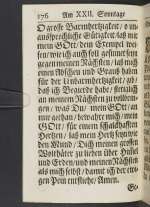 176 Am XXII. Sonntage
O grosse Barmhertzigkeit, o un-
aussprechliche Gütigkeit, laß mir
mein GOtt, dein Exempel wei-
sen, wie ich auch soll gesinnet seyn
gegen meinen Nächsten, laß mich
einen Abscheu und Grauß haben
für der Unbarmhertzigkeit, als
daß ich Begierde habe,
an meinem Nächsten zu vollbrin-
gen, was Du, mein GOtt, an
mir gethan, bewahre mich, mein
GOtt, für einem schalckhafften
Hertzen, laß mein Hertz seyn wie
den Mund, Dich meinen grossen
Wohlthäter zu lieben über Haabe
und Leben, und meinen Nächsten
als mich selbst, damit ich der ewi-
gen Pein entfliehe, Amen.